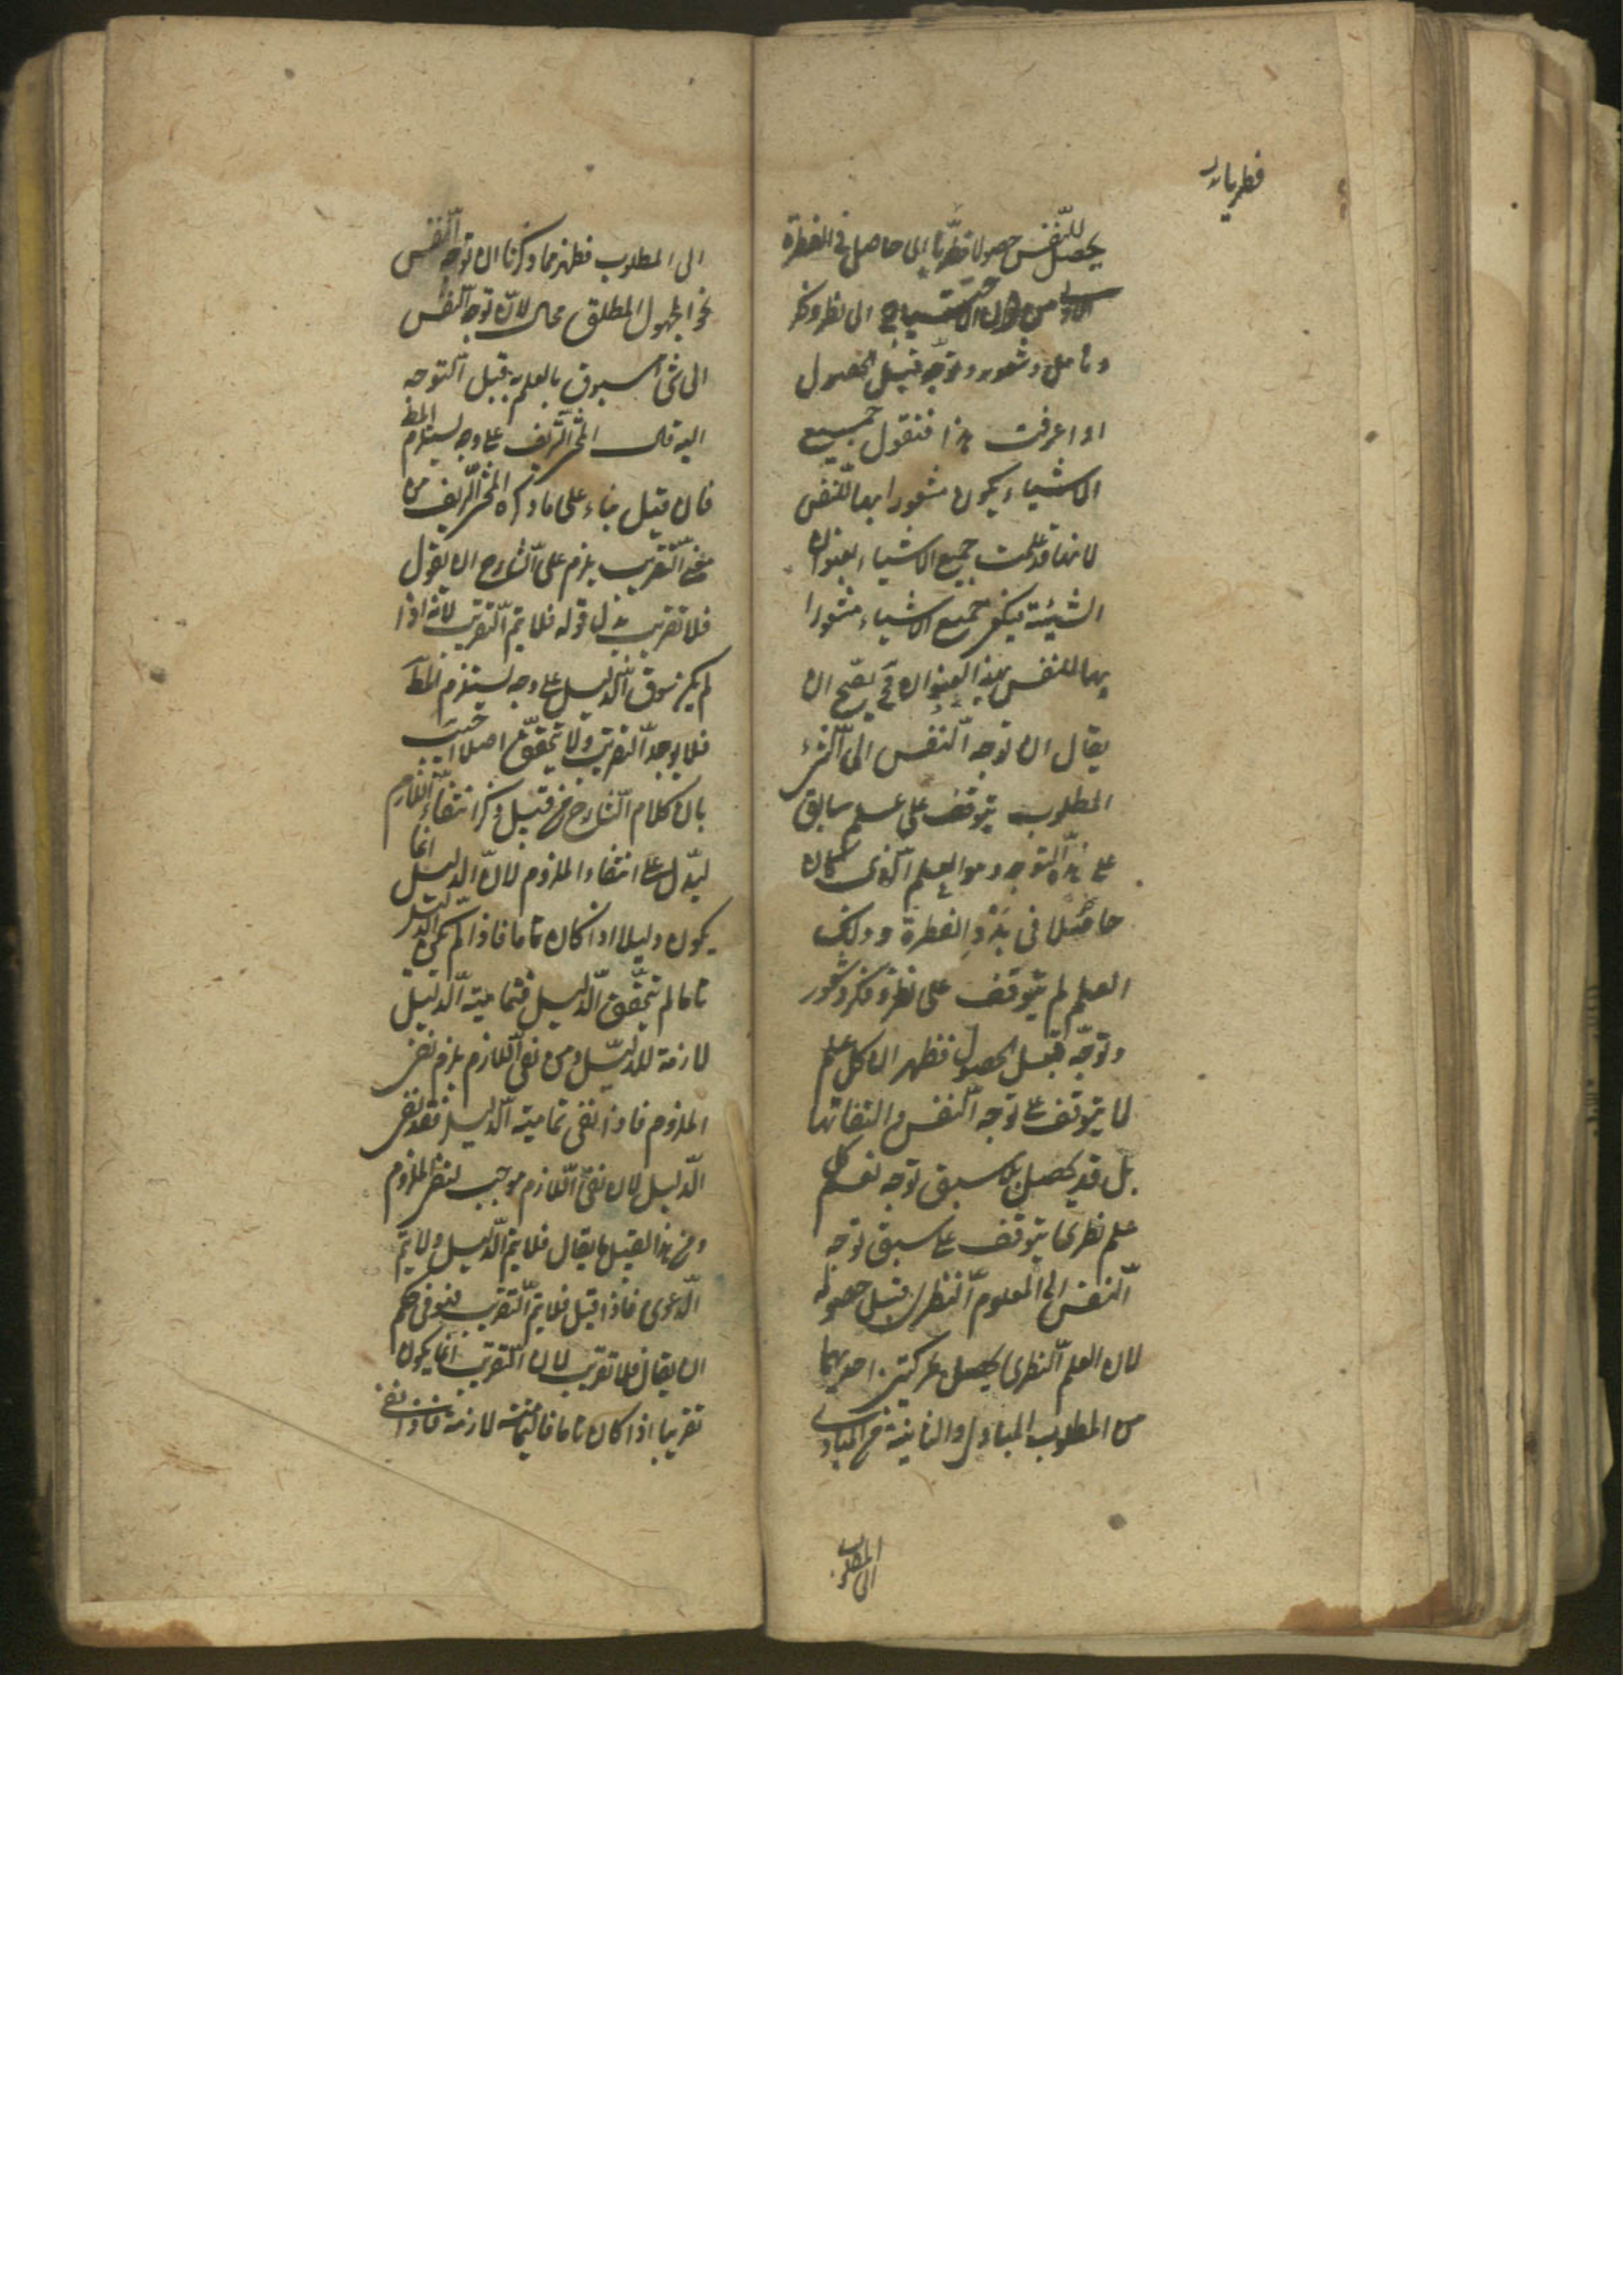 يحصل للنفس حصولا فطريا اى حاصل فى الفطرة
الاولى من غير الاحتياج الى نظر وفكر
وتامل وشعور وتوجه قبل الحصول
اذا عرفت هذا فنقول جميع
الاشياء يكون مشعورا بها للنفس
لانها قد علمت جميع الاشياء بعنوان
الشيئية فيكون جميع الاشياء مشعورا
بها للنفس بهذا العنوان فح يصح ان
يقال ان توجه النفس الى الشئ
المطلوب يتوقف على علم سابق
على هذا التوجه وهو العلم الذى كان
حاصلا فى بدو الفطرة وذلك
العلم لم يتوقف على نظر وفكر وشعور
وتوجه قبل الحصول فظهر ان كل علم
لا يتوقف على توجه النفس والتفاتها
بل قد يحصل بلا سبق توجه نعم كل
علم نظرى يتوقف على سبق توجه
النفس الى المعلوم النظرى قبل حصوله
لان العلم النظرى يحصل بحركتين احديهما
من المطلوب الى المبادى والثانية من المبادى
الى المطلوب
الى المطلوب فظهر مما ذكرنا ان توجه النفس
نحو المجهول المطلق محال لان توجه النفس
الى شئ مسبوق بالعلم به قبل التوجه
اليه قال المحشى الشريف على وجه يستلزم المط
فان قيل بناء على ما ذكره المحشى الشريف من
معنى التقريب يلزم على الشارح ان يقول
فلا تقريب بدل قوله فلا يتم التقريب لانه اذا
لم يكن سوق الدليل على وجه يستلزم المط
فلا يوجد التقريب ولا يتحقق اصلا اجيب
بان كلام الشارح من قبيل ذكر انتفاء اللازم
ليدل على انتفاء الملزوم لان الدليل انما
يكون دليلا اذا كان تاما فاذا لم يكن الدليل
تاما لم يتحقق الدليل فتمامية الدليل
لازمة للدليل ومن نفى اللازم يلزم نفى
الملزوم فاذا نفى تمامية الدليل فقد نفى
الدليل لان نفى اللازم موجب لنفى الملزوم
ومن هذا القبيل ما يقال فلا يتم الدليل ولا يتم
الدعوى فاذا قيل فلا يتم التقريب فهو فى حكم
ان يقال فلا تقريب لان التقريب انما يكون
تقريبا اذا كان تاما فالتمامية لازمة فاذا نفى